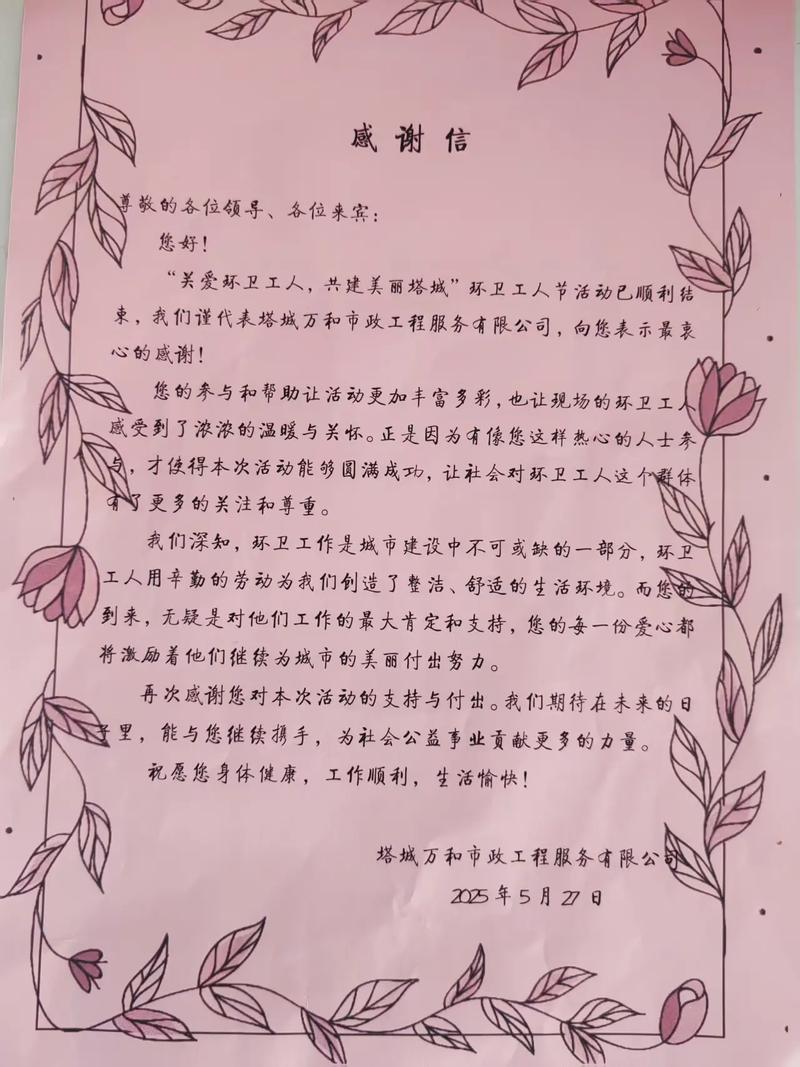 感谢信
尊敬的各位领导、各位来宾：
您好！
“关爱环卫工人，共建美丽塔城”环卫工人节活动已顺利结
束，我们谨代表塔城万和市政工程服务有限公司，向您表示最衷
心的感谢！
您的参与和帮助让活动更加丰富多彩，也让现场的环卫工人
感受到了浓浓的温暖与关怀。正是因为有像您这样热心的人士参
与，才使得本次活动能够圆满成功，让社会对环卫工人这个群体
有了更多的关注和尊重。
我们深知，环卫工作是城市建设中不可或缺的一部分，环卫
工人用辛勤的劳动为我们创造了整洁、舒适的生活环境。而您的
到来，无疑是对他们工作的最大肯定和支持，您的每一份爱心都
将激励着他们继续为城市的美丽付出努力。
再次感谢您对本次活动的支持与付出。我们期待在未来的日
子里，能与您继续携手，为社会公益事业贡献更多的力量。
祝愿您身体健康，工作顺利，生活愉快！
塔城万和市政工程服务有限公司
2025年5月27日